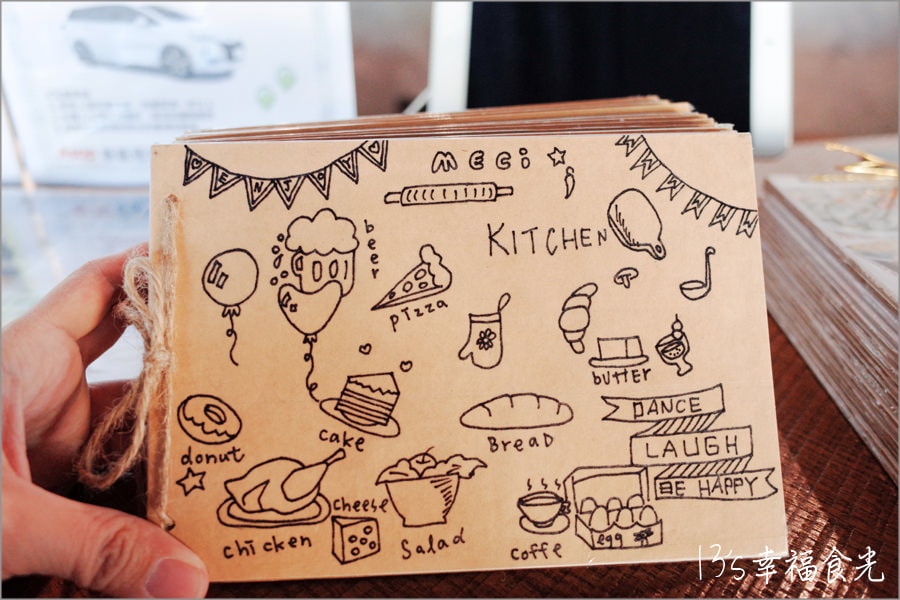 MECi
ENJOY
KITCHEN
beer
pizza
butter
cake
BREAD
DANCE
LAUGH
BE HAPPY
donut
cheese
chicken
Salad
coffe
egg
13's幸福食光